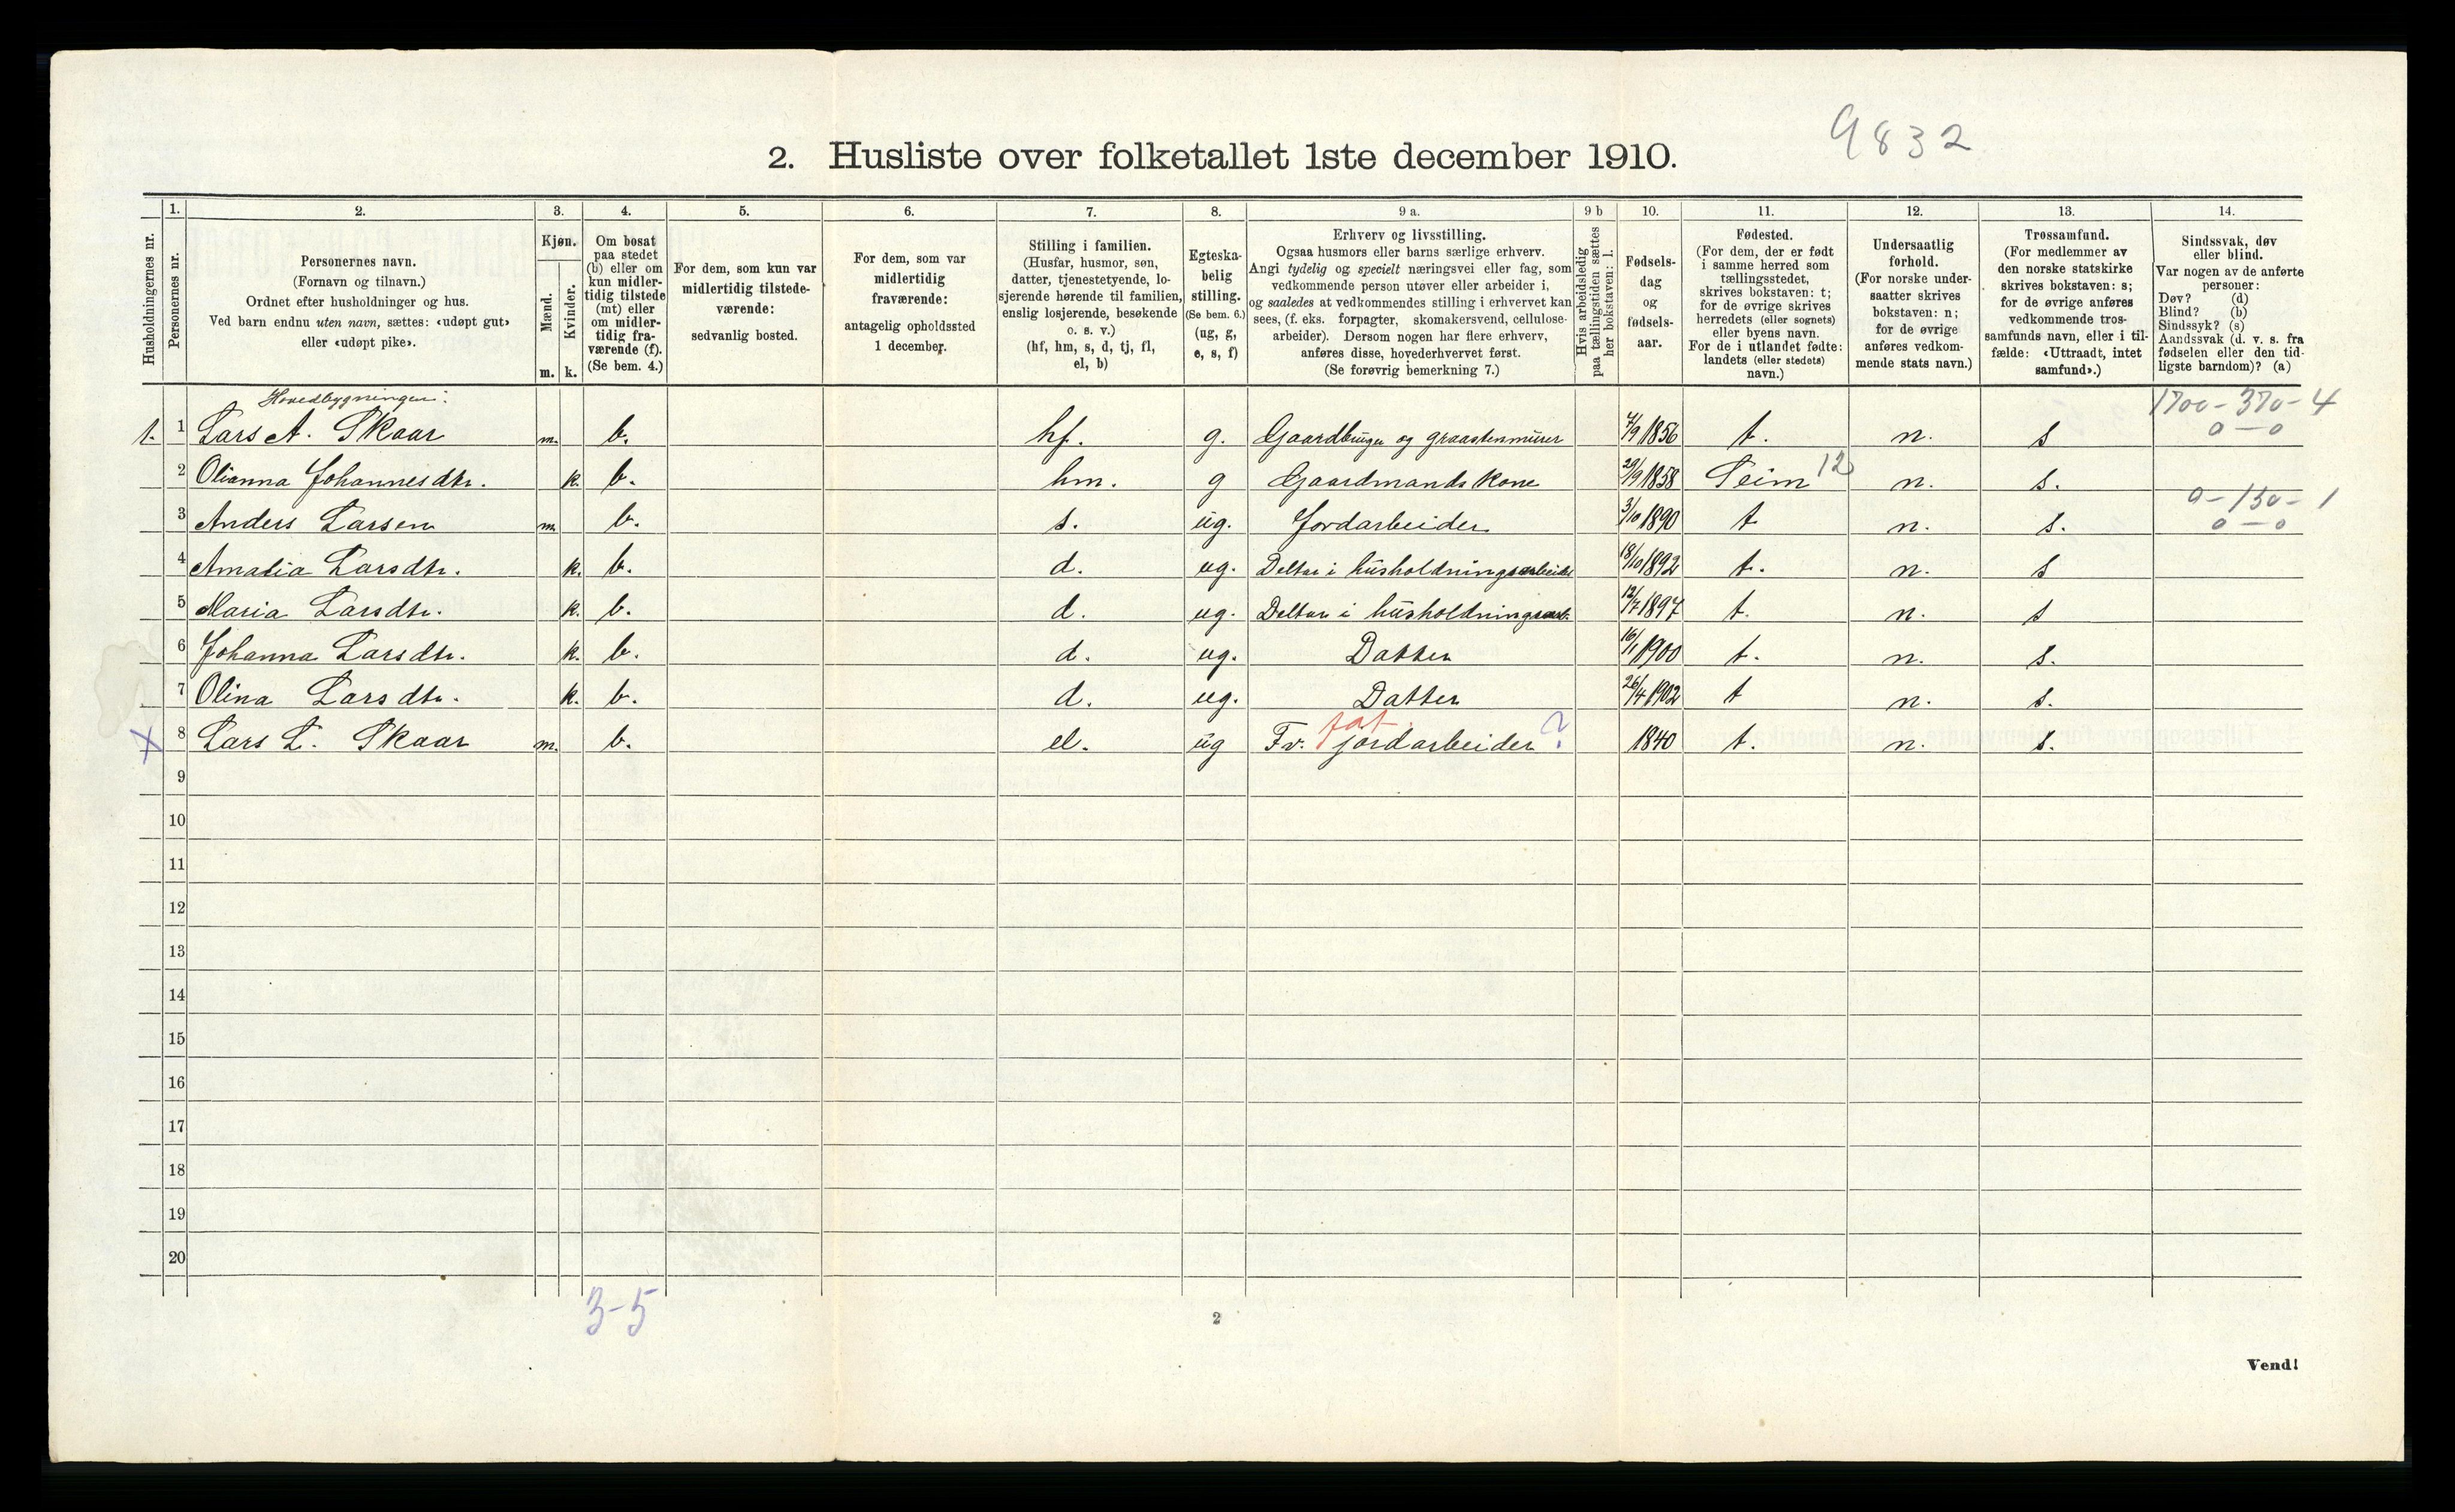 9832
2. Husliste over folketallet 1ste december 1910.
Husholdningernes nr.
1.
Personernes nr.
2.
Personernes navn.
(Fornavn og tilnavn.)
Ordnet efter husholdninger og hus.
Ved barn endnu uten navn, sættes: «udøpt gut»
eller «udøpt pike».
3.
Kjøn.
Mænd.
Kvinder.
m. k.
4.
Om bosat
paa stedet
(b) eller om
kun midler-
tidig tilstede
(mt) eller
om midler-
tidig fra-
værende (f).
(Se bem. 4.)
5.
For dem, som kun var
midlertidig tilstede-
værende:
sedvanlig bosted.
6.
For dem, som var
midlertidig
fraværende:
antagelig opholdssted
1 december.
7.
Stilling i familien.
(Husfar, husmor, søn,
datter, tjenestetyende, lo-
sjerende hørende til familien,
enslig losjerende, besøkende
o. s. v.)
(hf, hm, s, d, tj, fl,
el, b)
8.
Egteska-
belig
stilling.
(Se bem. 6.)
(ug, g,
e, s, f)
9 a.
Erhverv og livsstilling.
Ogsaa husmors eller barns særlige erhverv.
Angi tydelig og specielt næringsvei eller fag, som
vedkommende person utøver eller arbeider i,
og saaledes at vedkommendes stilling i erhvervet kan
sees, (f. eks. forpagter, skomakersvend, cellulose-
arbeider). Dersom nogen har flere erhverv,
anføres disse, hovederhvervet først.
(Se forøvrig bemerkning 7.)
9 b
Hvis arbeidsledig
paa tællingstiden sættes
her bokstaven: l.
10.
Fødsels-
dag
og
fødsels-
aar.
11.
Fødested.
(For dem, der er født
i samme herred som
tællingsstedet,
skrives bokstaven: t;
for de øvrige skrives
herredets (eller sognets)
eller byens navn.
For de i utlandet fødte:
landets (eller stedets)
navn.)
12.
Undersaatlig
forhold.
(For norske under-
saatter skrives
bokstaven: n;
for de øvrige
anføres vedkom-
mende stats navn.)
13.
Trossamfund.
(For medlemmer av
den norske statskirke
skrives bokstaven: s;
for de øvrige anføres
vedkommende tros-
samfunds navn, eller i til-
fælde: «Uttraadt, intet
samfund».)
14.
Sindssvak, døv
eller blind.
Var nogen av de anførte
personer:
Døv? (d)
Blind? (b)
Sindssyk? (s)
Aandssvak (d. v. s. fra
fødselen eller den tid-
ligste barndom)? (a)
Hovedbygningen:
1700 - 370 - 4
1. 1 Lars A. Skaar m. b. hf. g. Gaardbruger og graastenmurer 4/9 1856 t. n. s 0 - 0
2 Olianna Johannesdtr. k. b. hm. g Gaardmands Kone 29/9 1858 Seim 12 n. s.
0 - 150 - 1
3 Anders Larsen m. b. s. ug. Jordarbeider 3/10 1890 t n. s. 0 - 0
4 Amalia Larsdtr. k. b. d. ug. Deltar i husholdningsarbeidet 18/10 1892 t. n. s
5 Maria Larsdtr. k. b. d. ug. Deltar i husholdningsarb. 12/7 1897 t. n. s
6 Johanna Larsdtr. k. b. d. ug. Datter 16/1 1900 t. n. s.
7 Olina Larsdtr. k. b. d. ug. Datter 26/4 1902 t n. s.
fat.
x 8 Lars L. Skaar m. b. el. ug Fv. jordarbeider ? 1840 t. n. s.
9
10
11
12
13
14
15
16
17
18
19
20
3-5
2
Vend!